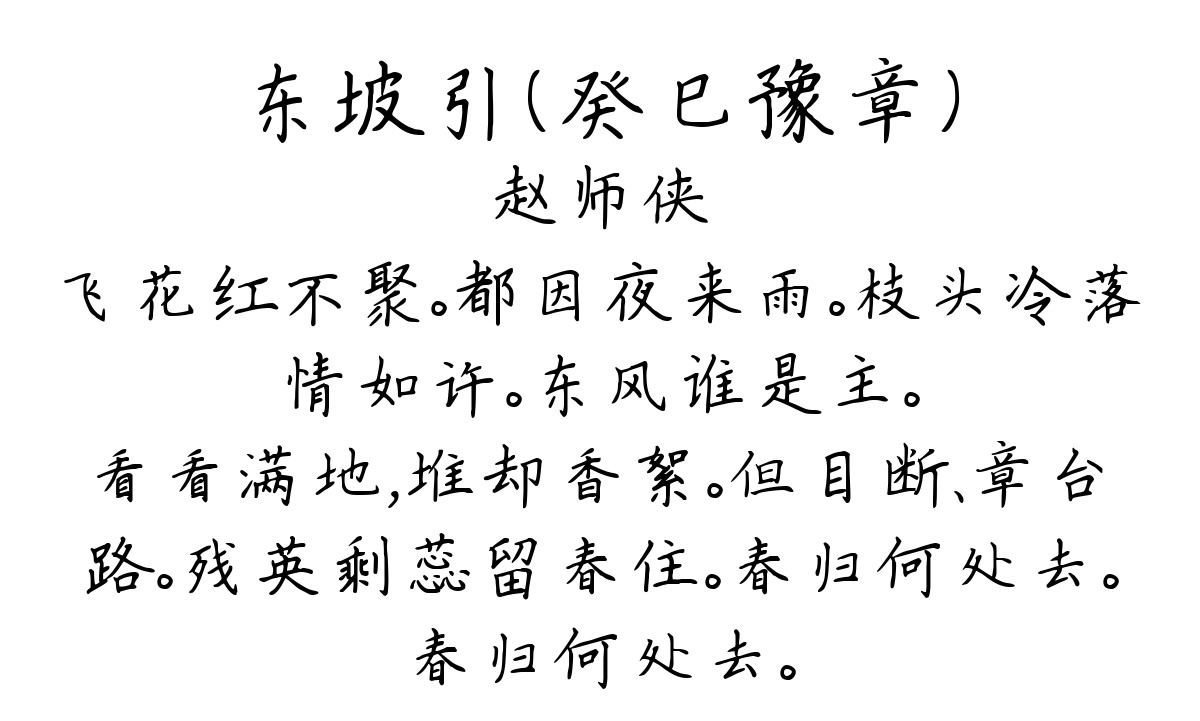 东坡引(癸巳豫章)
赵师侠
飞花红不聚。都因夜来雨。枝头冷落
情如许。东风谁是主。
看看满地,堆却香絮。但目断、章台
路。残英剩蕊留春住。春归何处去。
春归何处去。